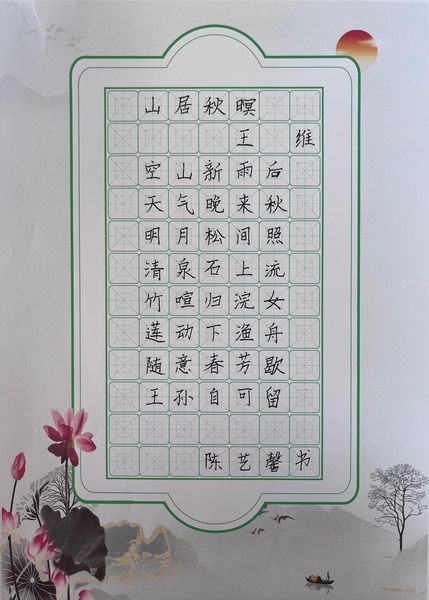 山居秋暝
王维
空山新雨后
天气晚来秋
明月松间照
清泉石上流
竹喧归浣女
莲动下渔舟
随意春芳歇
王孙自可留
陈艺馨书